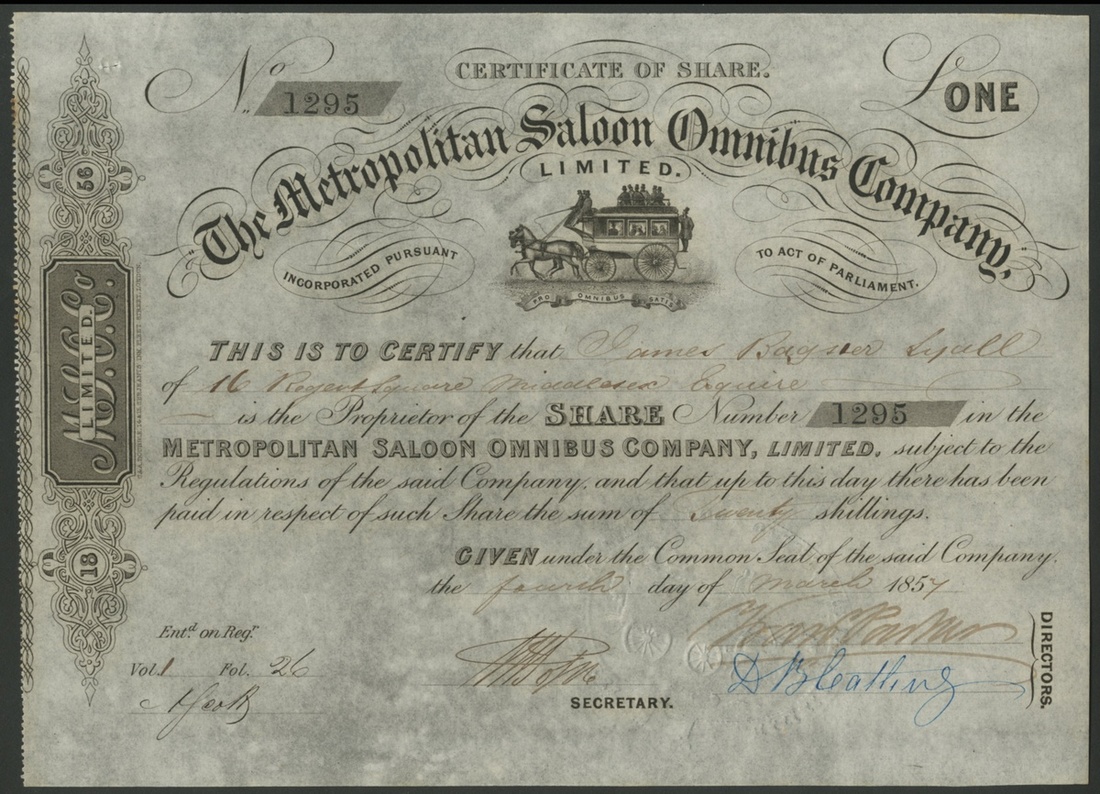 CERTIFICATE OF SHARE.
No. 1295
ONE
The Metropolitan Saloon Omnibus Company,
LIMITED.
INCORPORATED PURSUANT TO ACT OF PARLIAMENT.
PRO OMNIBUS SATIS
THIS IS TO CERTIFY that James Bagster Lyall
of 16 Regent Square Middlesex Esquire
is the Proprietor of the SHARE Number 1295 in the
METROPOLITAN SALOON OMNIBUS COMPANY, LIMITED. subject to the
Regulations of the said Company, and that up to this day there has been
paid in respect of such Share the sum of Twenty shillings.
GIVEN under the Common Seal of the said Company.
the fourth day of March 1857
Entd. on Regr.
Vol. 1 Fol. 26
SECRETARY.
DIRECTORS.
M.S.O.Co.
LIMITED.
18
56